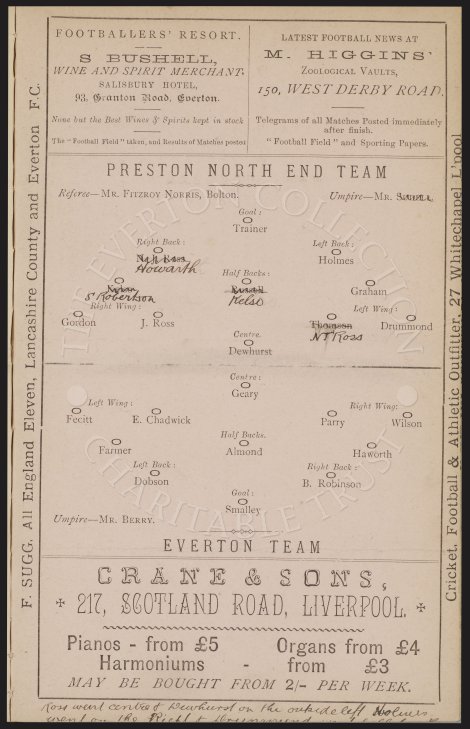 FOOTBALLERS' RESORT.
S BUSHELL,
WINE AND SPIRIT MERCHANT.
SALISBURY HOTEL,
93, Granton Road, Everton.
None but the Best Wines & Spirits kept in stock
The "Football Field" taken, and Results of Matches posted
LATEST FOOTBALL NEWS AT
M. HIGGINS'
ZOOLOGICAL VAULTS,
150, WEST DERBY ROAD.
Telegrams of all Matches Posted immediately
after finish.
"Football Field" and Sporting Papers.
PRESTON NORTH END TEAM
Referee—MR. FITZROY NORRIS, Bolton.
Umpire—MR.
Goal:
Trainer
Right Back:
Howarth
Left Back:
Holmes
Half Backs:
S Robertson
Kelso
Graham
Right Wing:
Gordon
J. Ross
Left Wing:
Thomson
N J Ross
Drummond
Centre.
Dewhurst
Centre:
Geary
Left Wing:
Fecitt
E. Chadwick
Right Wing:
Parry
Wilson
Half Backs.
Farmer
Almond
Haworth
Left Back:
Dobson
Right Back:
B. Robinson
Goal:
Smalley
Umpire—MR. BERRY.
EVERTON TEAM
CRANE & SONS,
217, SCOTLAND ROAD, LIVERPOOL.
Pianos - from £5 Organs from £4
Harmoniums - from £3
MAY BE BOUGHT FROM 2/- PER WEEK.
F. SUGG. All England Eleven, Lancashire County and Everton F.C.
Cricket, Football & Athletic Outfitter, 27 Whitechapel L'pool
Ross went centre & Dewhurst on the outside left Holmes
went on the Right & Drummond
THE EVERTON COLLECTION
CHARITABLE TRUST